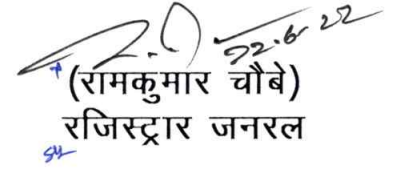 22.6.22
(रामकुमार चौबे)
रजिस्ट्रार जनरल